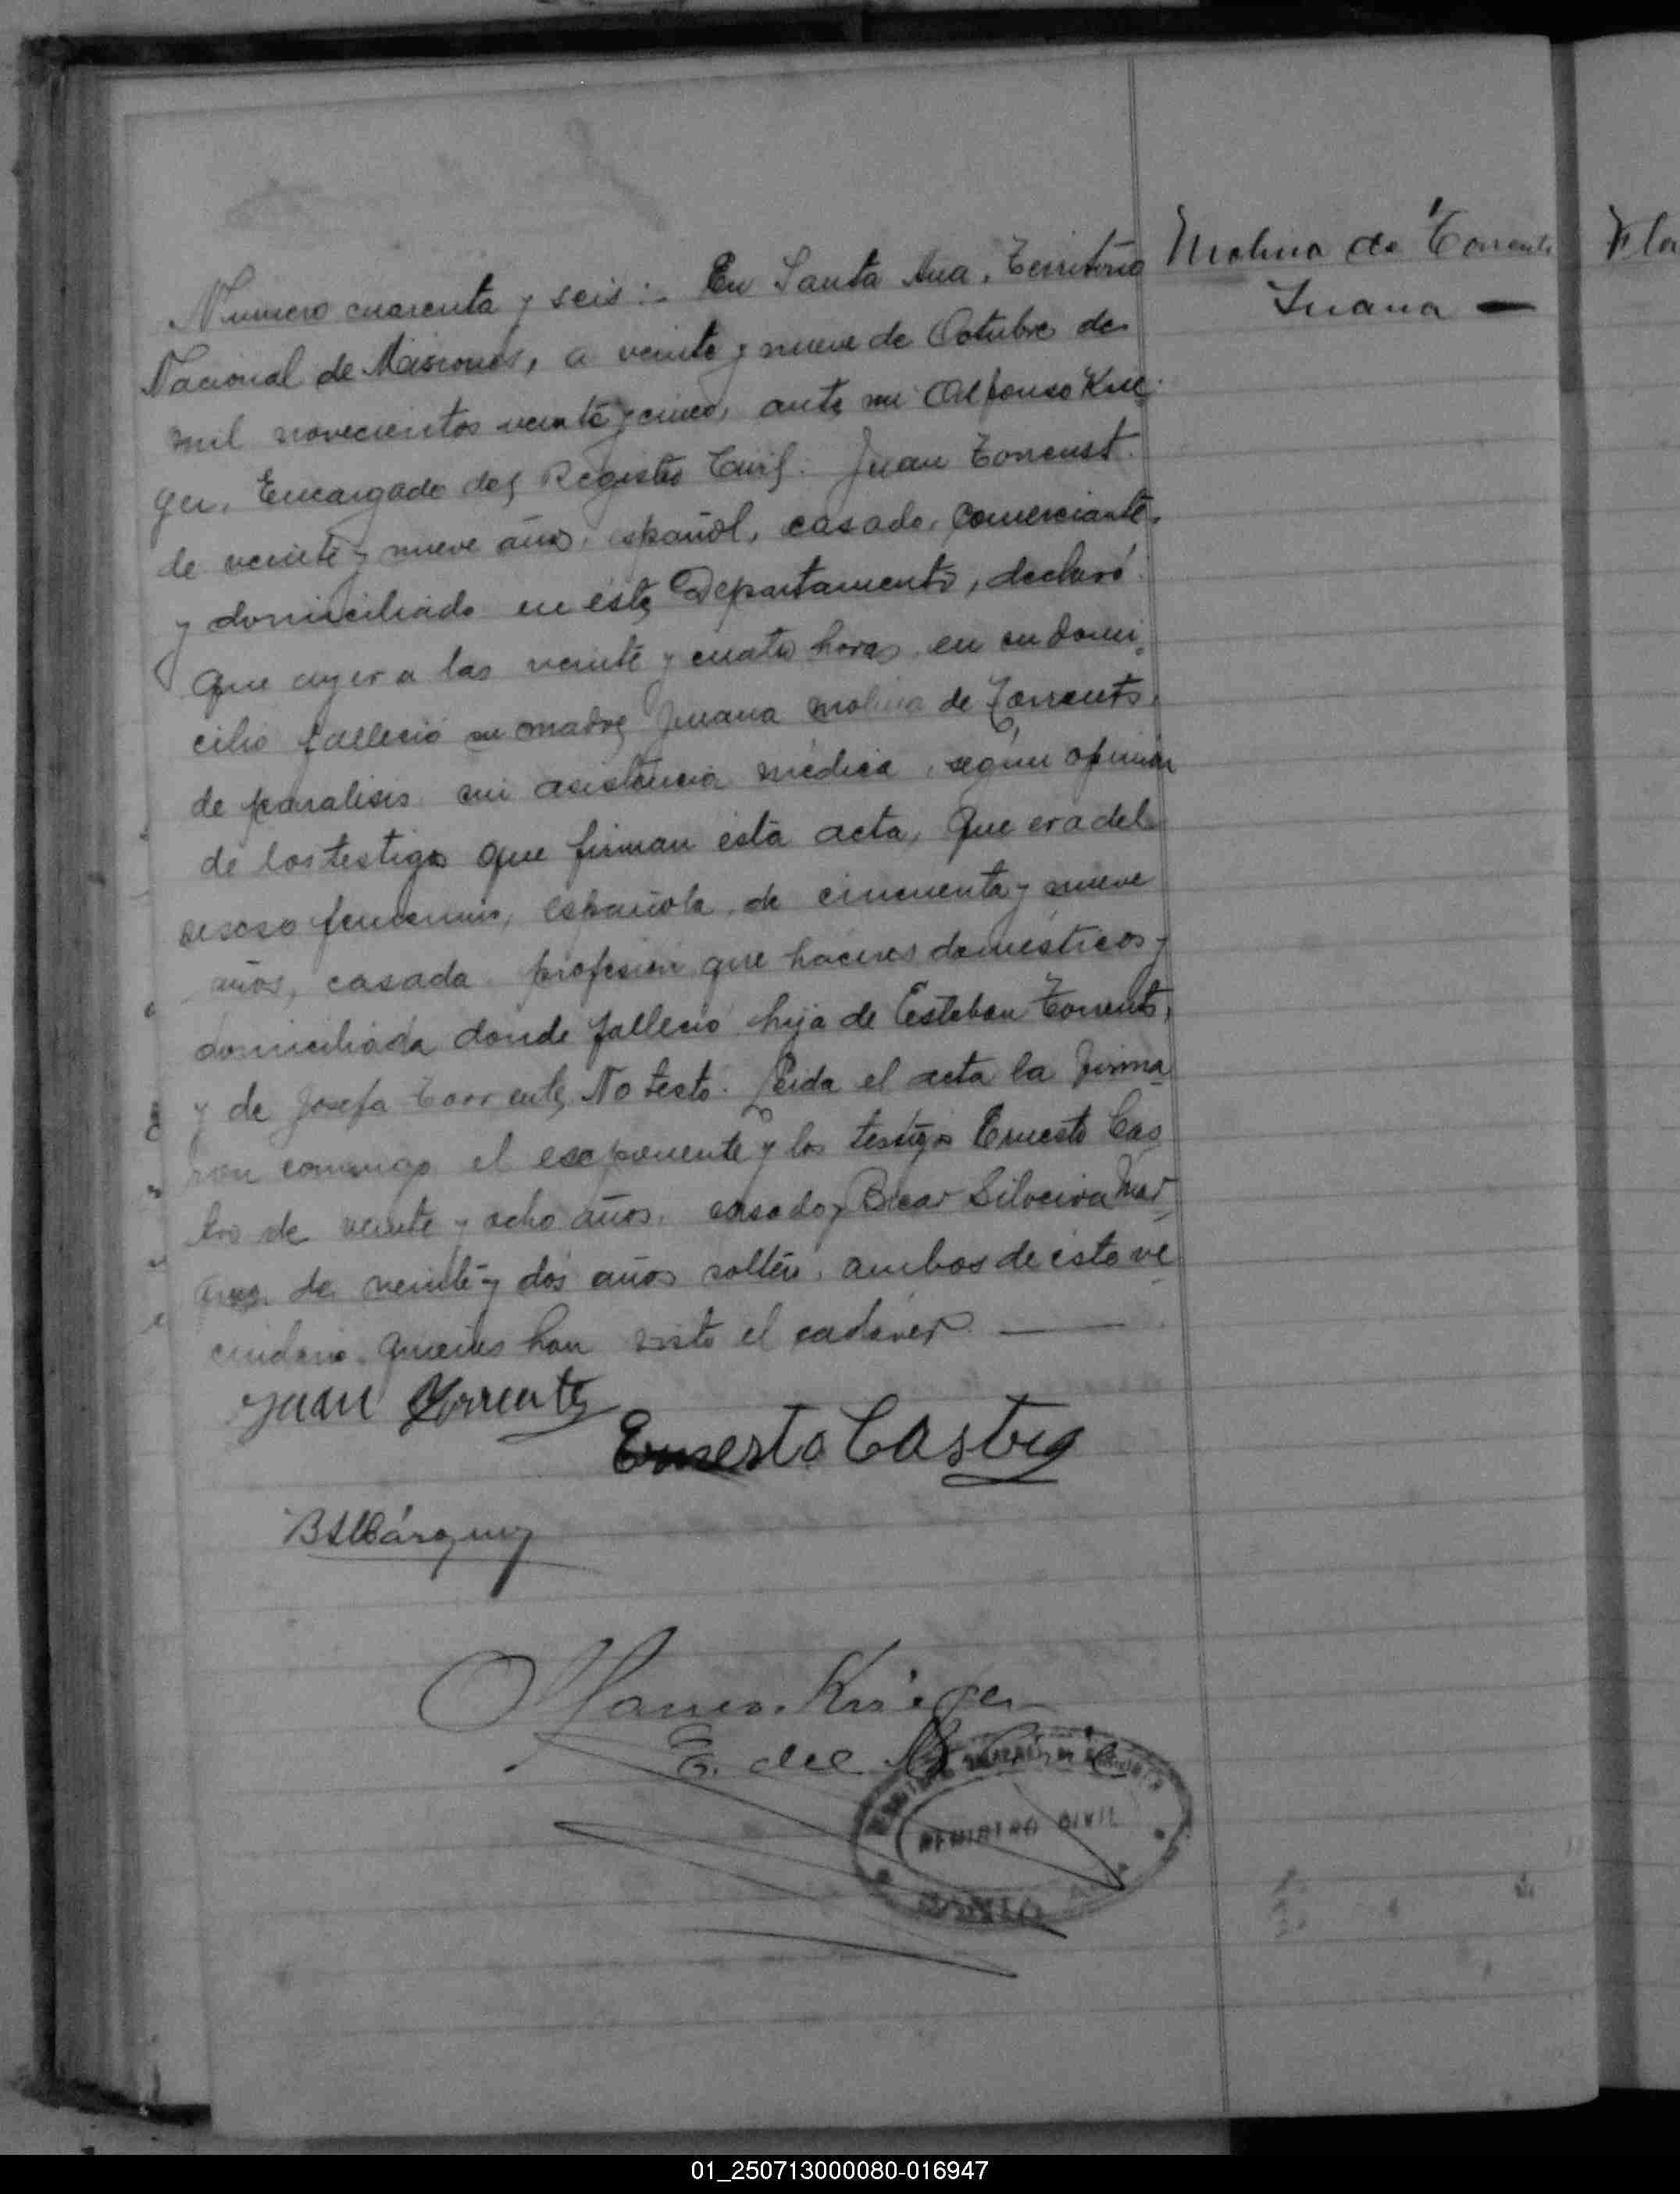 Molina de Torrents
Juana —
Numero cuarenta y seis:- En Santa Ana, Territorio
Nacional de Misiones, a veinte y nueve de Octubre de
mil novecientos veinte y cinco, ante mi Alfonso Krie
ger, Encargado del Registro Civil: Juan Torrenst.
de veinte y nueve años, español, casado, comerciante,
y domiciliado en este Departamento, declaró:
Que ayer a las veinte y cuatro horas en su domi
cilio falleció su madre Juana Molina de Torrents,
de paralisis sin asistencia médica, según opinión
de los testigos que firman esta acta, Que era del
sexso femenino, española, de cincuenta y nueve
años, casada profesión que haceres domésticos y
domiciliada donde falleció hija de Esteban Torrents,
y de Josefa Torrents, No testó. Leida el acta la firma
ron conmigo el exponente y los testigos Ernesto Cas
tro de veinte y ocho años, casado y Brear Silveira Mar
de veinte y dos años soltero, ambos de este ve
cindario quienes han visto el cadáver. —
Juan Torrents
Ernesto Castro
BSMárquez
Alfonso Krieger
E. del R. Civil
REGISTRO CIVIL
Flor
01_250713000080-016947